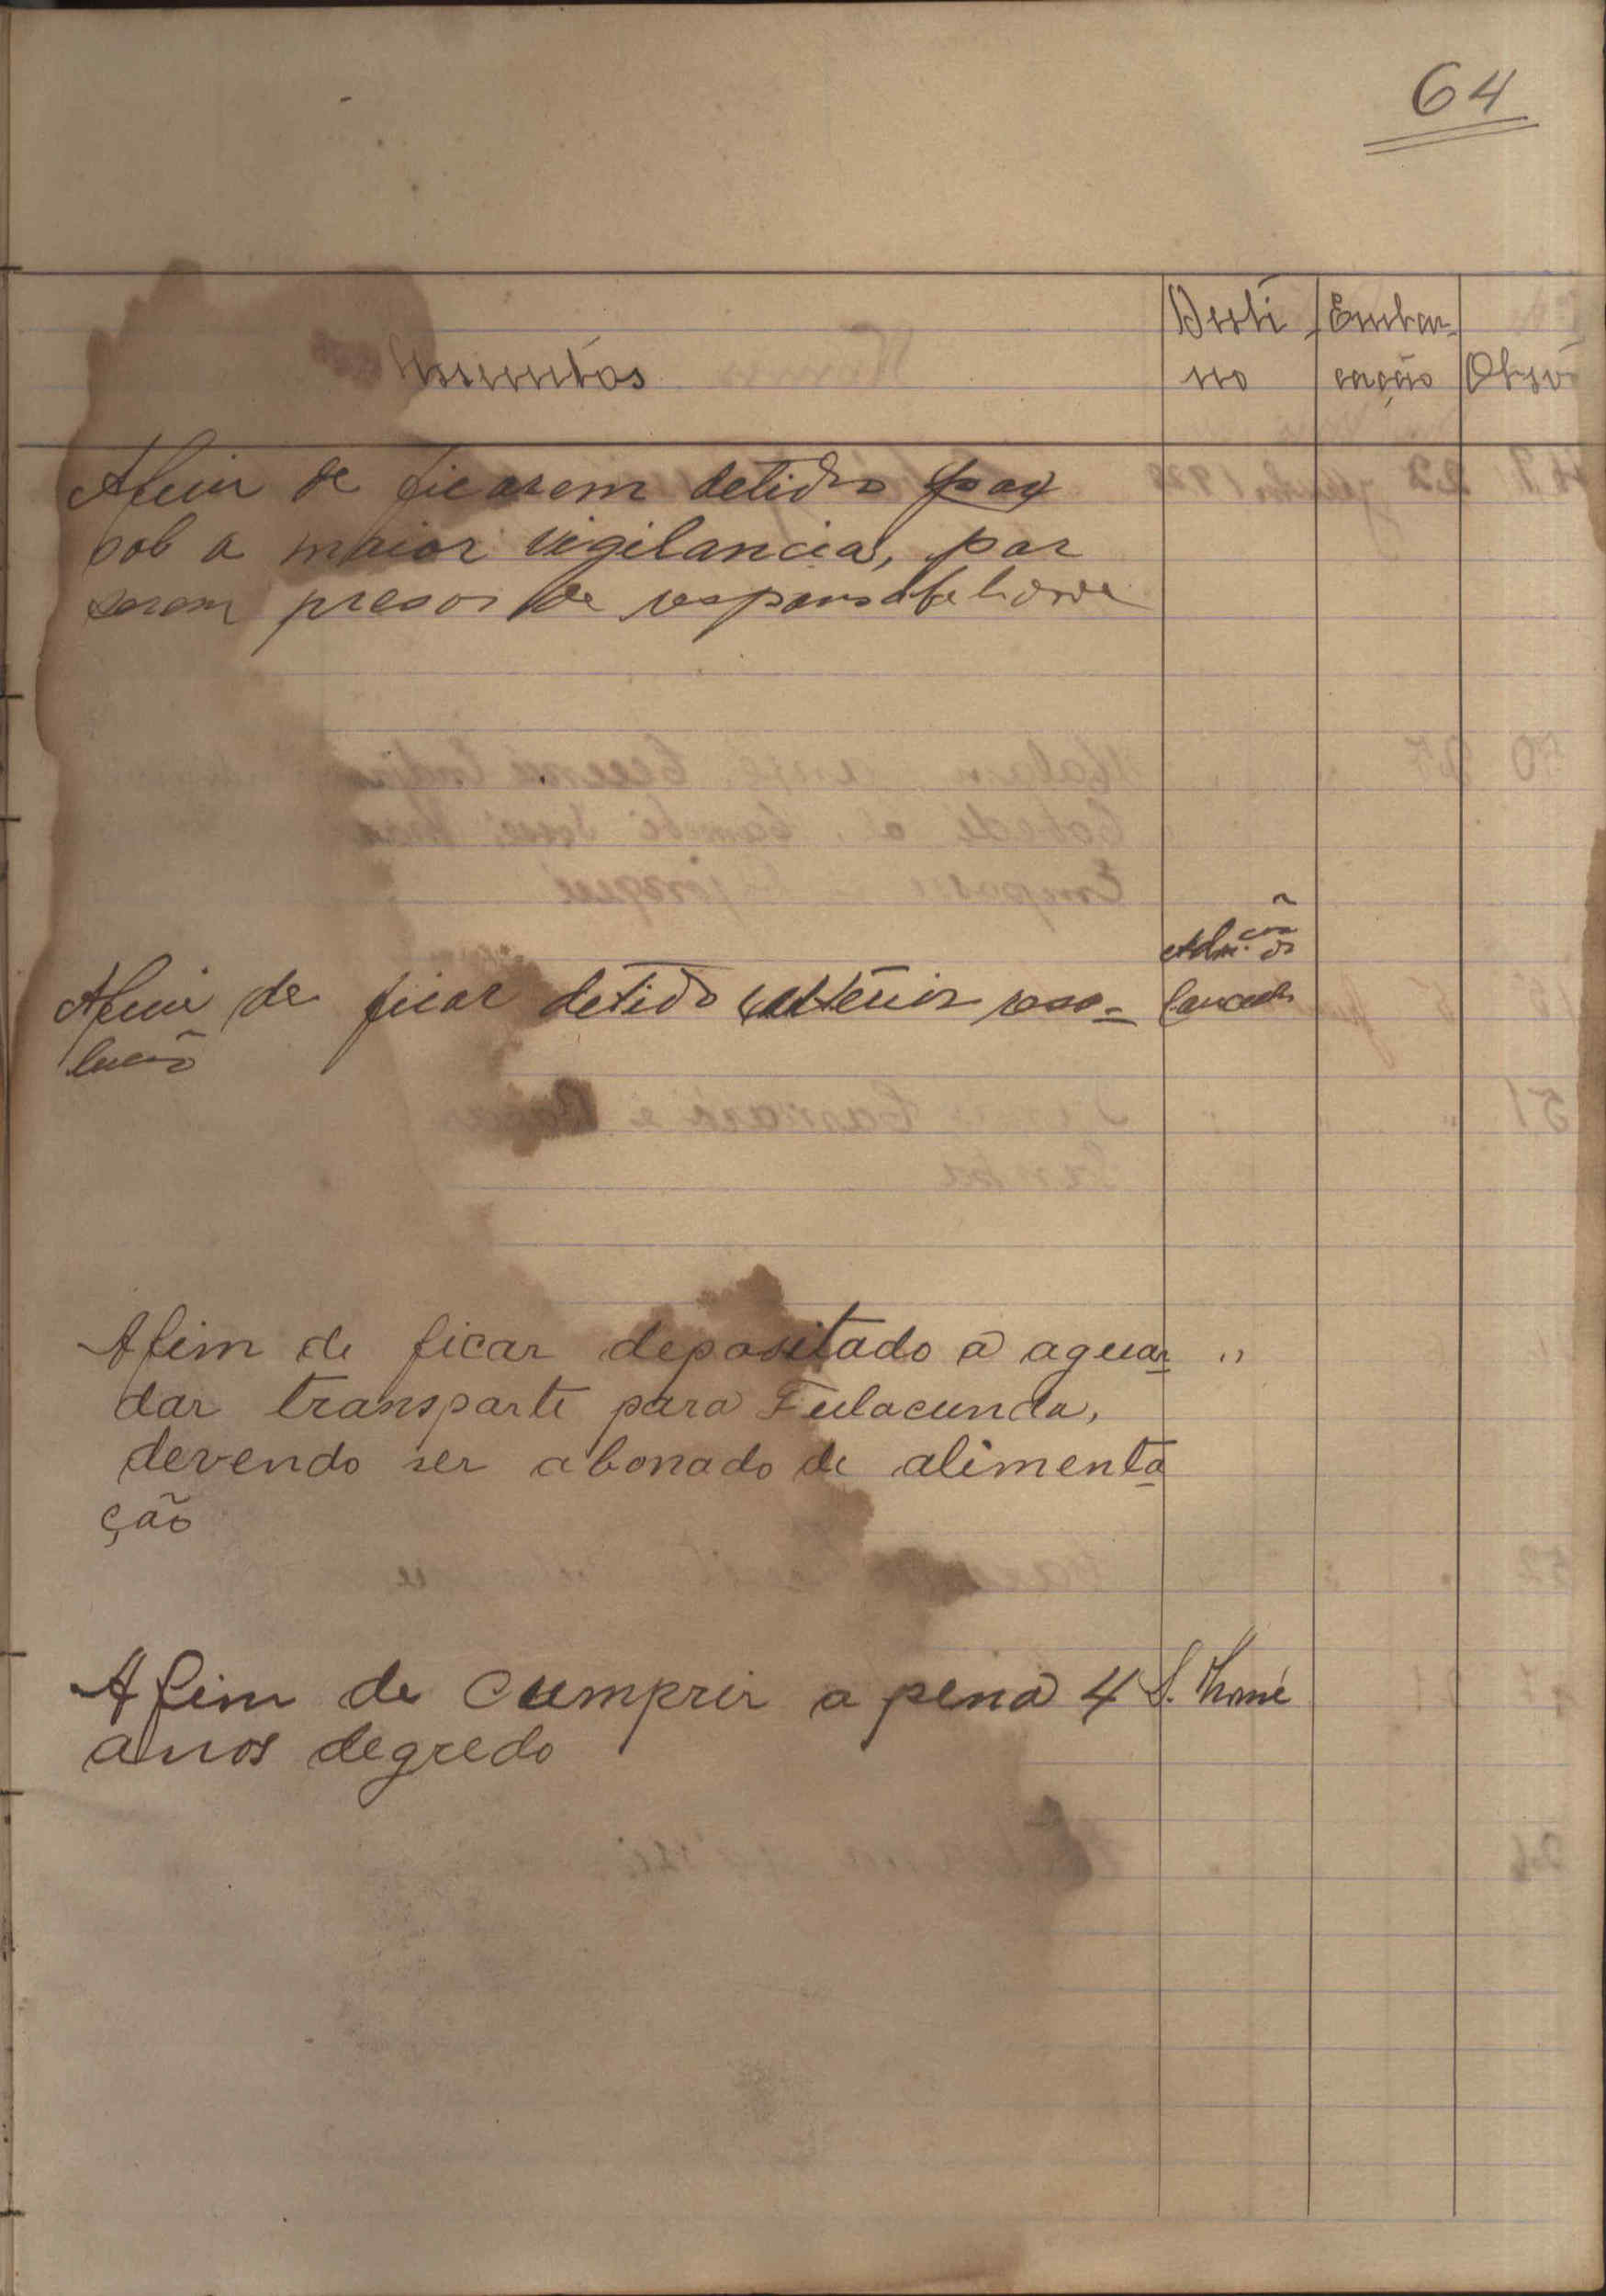 64
Assuntos
Desti
no
Embar-
cação
Obsv
Afim de ficarem detidos
sob a maior vigilancia, por
serem presos de responsabelidade
Adm. ção
Afim de ficar detido reso-
lução
Afim de ficar depositado a aguar "
dar transparte para Fulacunda,
devendo ser abonado de alimenta
ção
Afim de cumprir a pena 4 S. Thomé
anos degredo